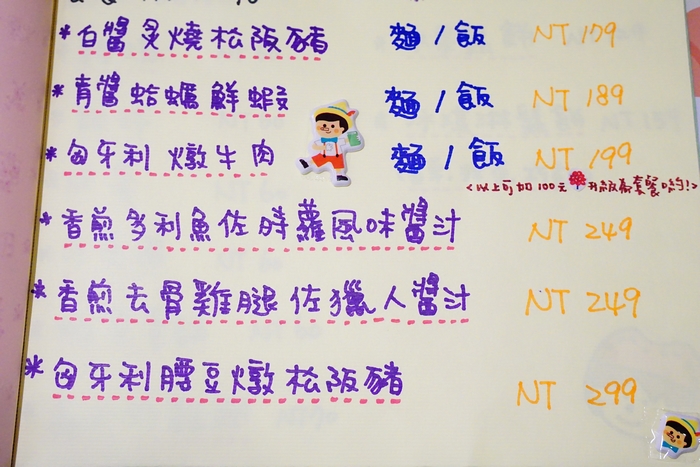 *白醬炙燒松阪豬 麵/飯 NT 179
*青醬蛤蠣鮮蝦 麵/飯 NT 189
*匈牙利燉牛肉 麵/飯 NT 199
<以上可加100元升級為套餐喲!>
*香煎多利魚佐時蘿風味醬汁 NT 249
*香煎去骨雞腿佐獵人醬汁 NT 249
*匈牙利腰豆燉松阪豬 NT 299